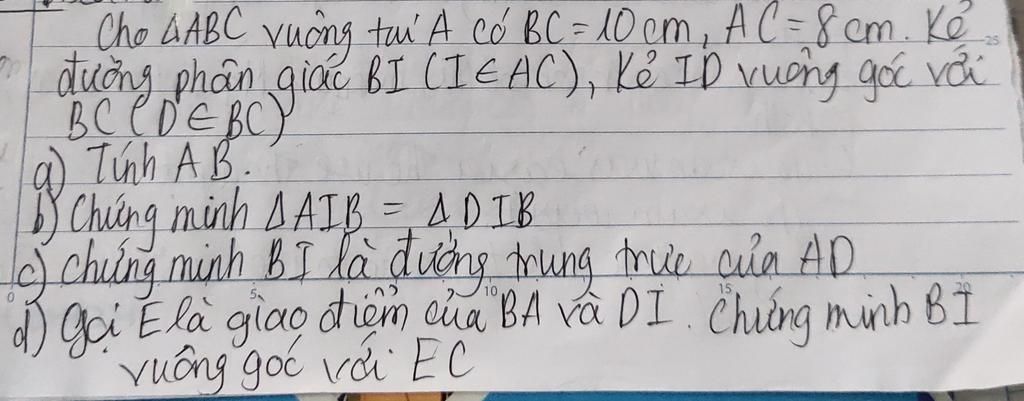 Cho ΔABC vuông tại A có BC = 10cm, AC = 8cm. Kẻ
đường phân giác BI (I ∈ AC), Kẻ ID vuông góc với
BC (D ∈ BC)
a) Tính AB.
b) Chứng minh ΔAIB = ΔDIB
c) Chứng minh BI là đường trung trực của AD
d) Gọi E là giao điểm của BA và DI. Chứng minh BI
vuông góc với EC